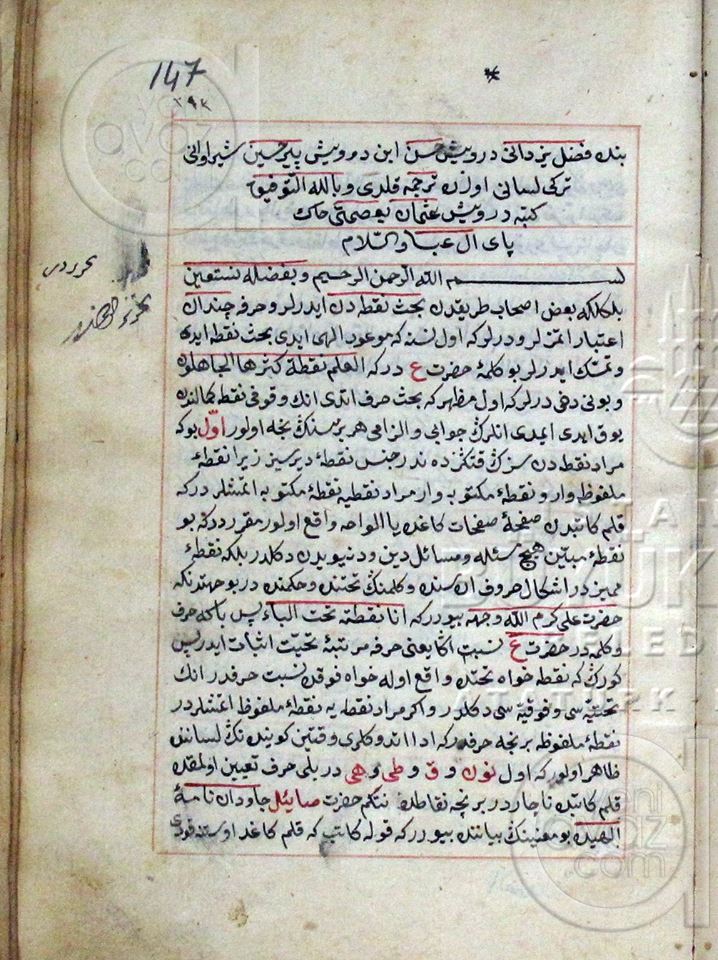 147
١٩٢
بنده فضل یزدانی درویش حسن ابن درویش پیر حسین شیروانی
ترکی لسانی اوزره ترجمه قلدی و بالله التوفیق
کتبه درویش عثمان بو عصمتی خاک
پای ال عبا والسلام
بسم الله الرحمن الرحیم و بفضله نستعین
بلکلکه بعض اصحاب طریقدن بحث نقطه دن ایدرلر و حرفه چندان
اعتبار اتمزلر و درلر که اول نسنه که موعود الهی ایدی بحث نقطه ایدی
و تمسک ایدرلر بو کلمهٔ حضرت ع در که العلم نقطة کثرها الجاهلون
و بونی دخی درلر که اول مظهر که بحث حرف اتدی انک وقوفی نقطه کمالندن
یوق ایدی ایمدی انلرک جوابی و الزامی هر برسنک نجه اولور اوّل بو که
مراد نقطه دن سزک قتکزده ندر جنس نقطهٔ دیرسز زیرا نقطهٔ
ملفوظه وار و نقطهٔ مکتوبه وار مراد نقطیه نقطهٔ مکتوبه اتمشلر در که
قلم کاتبدن صفحهٔ صفحات کاغده یا الواحه واقع اولور مقرر در که بو
نقطهٔ مبیّن هیچ سئله و مسائل دین و دنیویدن دکلدر بلکه نقطهٔ
ممیز در اشکال حروف ان سنده و کلمنک تحتنده و حکمنده در بو جهتدنکه
حضرت علی کرم الله وجهه بیورر که انا نقطته تحت الباء پس با که حرف
و کلمه در حضرت ع نسبت اکا یعنی حرفه مرتبهٔ تحتیّت اثبات ایدر پس
کورک که نقطه خواه تحتدن واقع اوله خواه فوقدن نسبت حرفدر انک
تحتیّه سی و فوقیّه سی دکلدر و اکر مراد نقطه یه نقطهٔ ملفوظ اتمشلر در
نقطهٔ ملفوظه بر نجه حرفدر که ادا اندوکلری وقتین کوینده نک لسانندن
ظاهر اولور که اول نون و ق و طی و هی در بلی حرف تعیین اولمقده
قلم کاتبدن ناچار در بر نچه نقاطدن نتکم حضرت صایئل جاودان نامهٔ
الهیده بو معنینک بیاننده بیورر که قوله کاتب که قلم کاغد اوستنه قودی